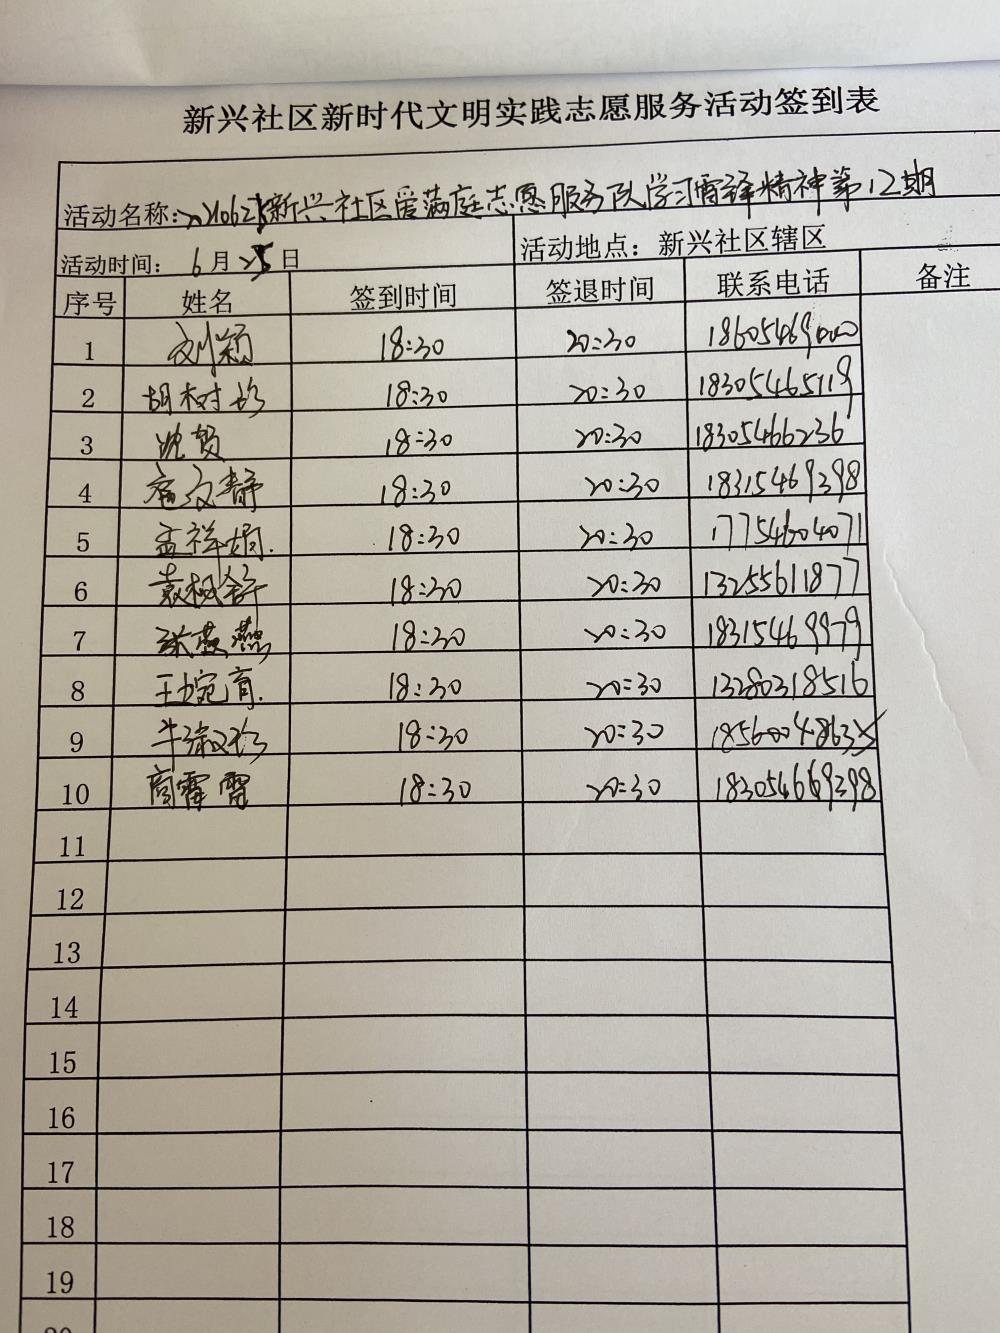 新兴社区新时代文明实践志愿服务活动签到表
活动名称: 新兴社区爱满庭志愿服务队学习雷锋精神第12期
活动时间: 6月25日 活动地点: 新兴社区辖区
序号 姓名 签到时间 签退时间 联系电话 备注
1 刘颖 18:30 20:30 18605469000
2 胡树珍 18:30 20:30 18305465119
3 沈贺 18:30 20:30 18305466236
4 文静 18:30 20:30 18315469398
5 孟祥娟. 18:30 20:30 17754604071
6 袁树舒 18:30 20:30 13255611877
7 燕 18:30 20:30 18315469979
8 王婉育. 18:30 20:30 13280318516
9 牛淑珍 18:30 20:30 18560048635
10 商雷雷 18:30 20:30 183054669398
11
12
13
14
15
16
17
18
19
20